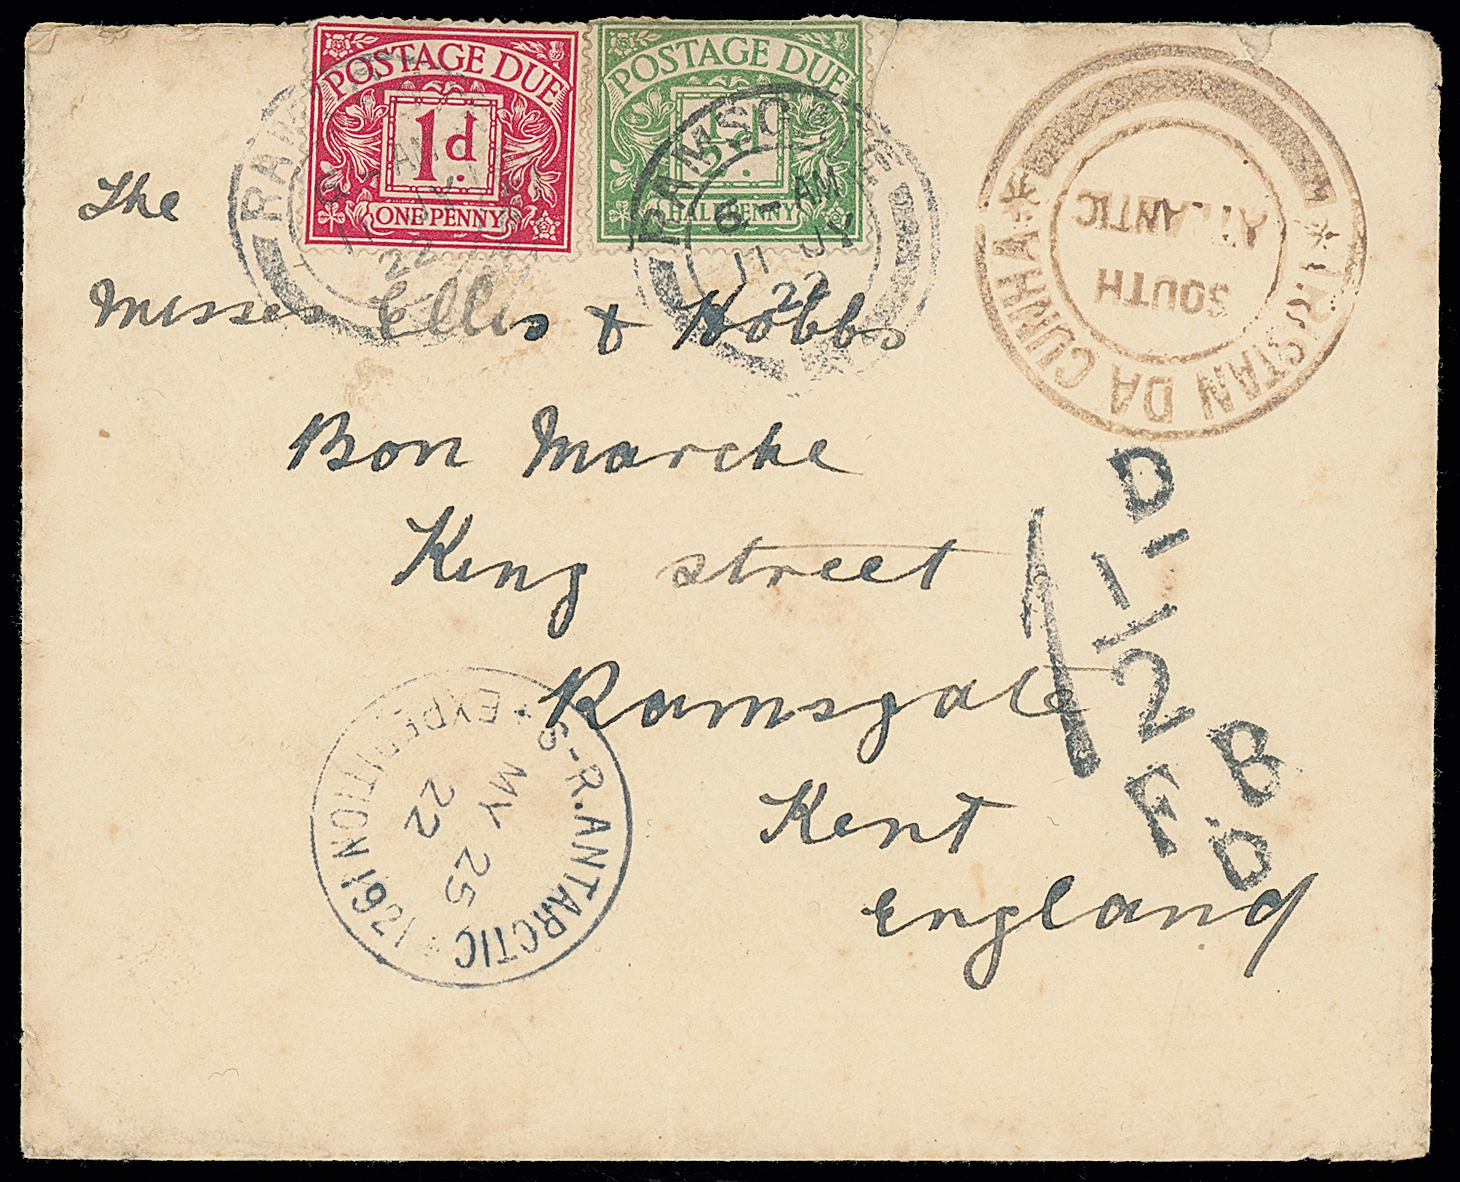 POSTAGE DUE
1d
ONE PENNY
POSTAGE DUE
½d.
HALF PENNY
6 - AM
11 JY
22
RAMSGATE
6 - AM
11 JY
22
* TRISTAN DA CUNHA *
SOUTH
ATLANTIC
The
Misses Ellis & Hobbs
Bon Marche
King street
Ramsgate
Kent
England
1
D
1
2
F.B
D
S-R. ANTARCTIC
EXPEDITION 1921
MY 25
22